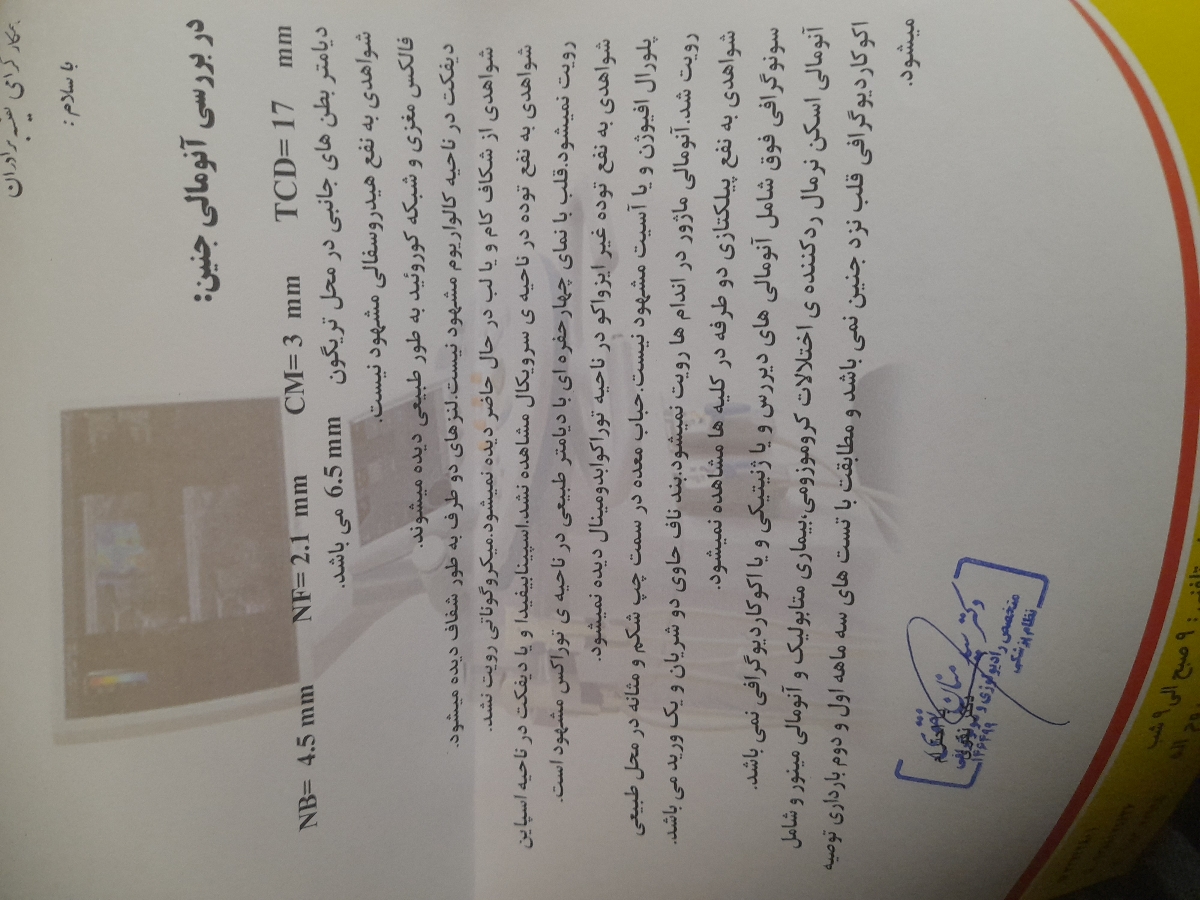 همکار گرامی
با سلام :
در بررسی آنومالی جنین:
NB= 4.5 mm NF= 2.1 mm CM= 3 mm TCD= 17 mm
دیامتر بطن های جانبی در محل تریگون 6.5 mm می باشد.
شواهدی به نفع هیدروسفالی مشهود نیست.
فالکس مغزی و شبکه کوروئید به طور طبیعی دیده میشوند.
دیفکت در ناحیه کالواریوم مشهود نیست.لنزهای دو طرف به طور شفاف دیده میشود.
شواهدی از شکاف کام و یا لب در حال حاضر دیده نمیشود.میکروگوناتی رویت نشد.
شواهدی به نفع توده در ناحیه ی سرویکال مشاهده نشد.اسپینابیفیدا و یا دیفکت در ناحیه اسپاین
رویت نمیشود.قلب با نمای چهار حفره ای با دیامتر طبیعی در ناحیه ی توراکس مشهود است.
شواهدی به نفع توده غیر ایزواکو در ناحیه توراکوابدومینال دیده نمیشود.
پلورال افیوژن و یا آسیت مشهود نیست.حباب معده در سمت چپ شکم و مثانه در محل طبیعی
رویت شد.آنومالی ماژور در اندام ها رویت نمیشود.بند ناف حاوی دو شریان و یک ورید می باشد.
شواهدی به نفع پیلکتازی دو طرفه در کلیه ها مشاهده نمیشود.
سونوگرافی فوق شامل آنومالی های دیررس و یا ژنیتیکی و یا اکوکاردیوگرافی نمی باشد.
آنومالی اسکن نرمال ردکننده ی اختلالات کروموزومی،بیماری متابولیک و آنومالی مینور و شامل
اکوکاردیوگرافی قلب نزد جنین نمی باشد و مطابقت با تست های سه ماهه اول و دوم بارداری توصیه
میشود.
متخصص رادیولوژی و
نظام پزشکی
۹ صبح الی ۹ شب